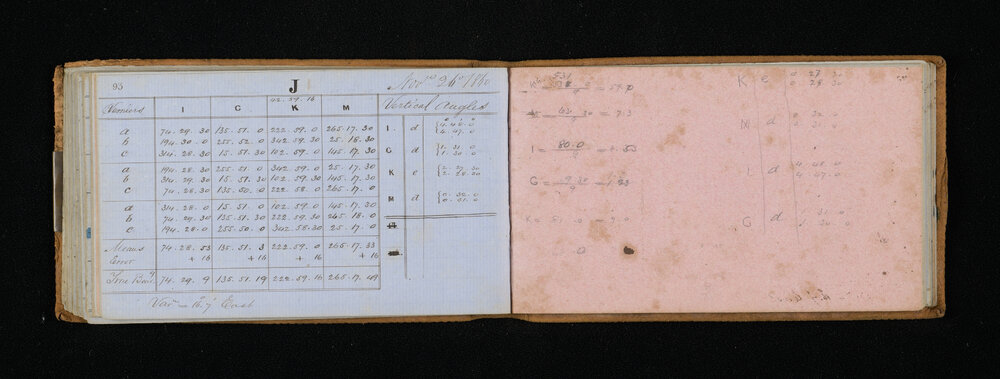 93 J Nov 26 1860
42. 59. 16
Verniers I G K M Vertical Angles
a 74. 29. 30 135. 51. 0 222. 59. 0 265. 17. 30 I. d
b 194. 30. 0 255. 52. 0 342. 59. 30 25. 18. 30 4. 47. 0
c 314. 28. 30 15. 51. 30 102. 59. 0 145. 17. 30 G d 1. 31. 0
1. 30. 0
a 194. 28. 30 255. 51. 0 342. 59. 0 25. 17. 30
b 314. 29. 30 15. 51. 30 102. 59. 30 145. 17. 30 K e 2. 28. 30
c 74. 28. 30 135. 50. 0 222. 58. 0 265. 17. 0
a 314. 28. 0 15. 51. 0 102. 59. 0 145. 17. 30 M d 0. 32. 0
0. 31. 0
b 74. 29. 30 135. 51. 30 222. 59. 30 265. 18. 0
c 194. 28. 0 255. 50. 0 342. 58. 30 25. 17. 0
Means 74. 28. 53 135. 51. 3 222. 59. 0 265. 17. 33
Error + 16 + 16 + 16 + 16
True 74. 29. 9 135. 51. 19 222. 59. 16 265. 17. 49
East
K e 27 30
28 30
= 63. = 7.3
M d
31. 0
I = 80.0 / 9
L d 4 46. 0
4 47. 0
G =
G d 31. 0